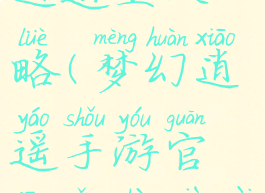 lüè mèng huàn xiāo
略(梦幻逍
yáo shǒu yóu guān
遥手游官